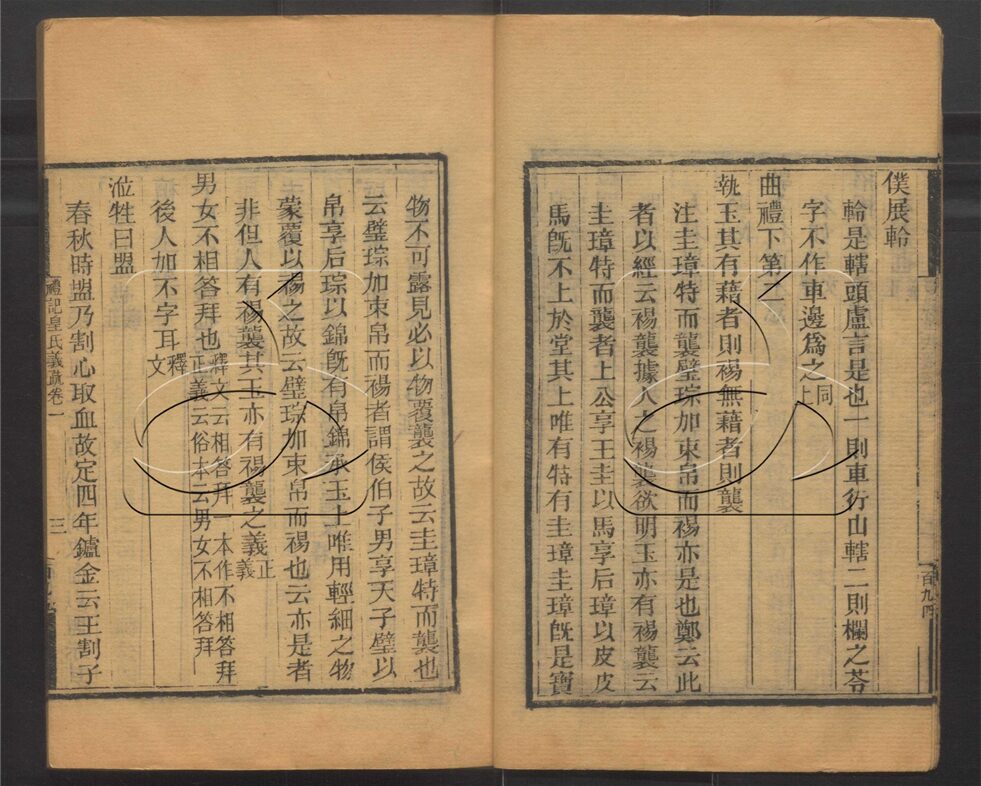 僕展軨
軨是轄頭盧言是也一則車行山轄二則欄之苓
字不作車邊爲之同上
曲禮下第二
執玉其有藉者則裼無藉者則襲
注圭璋特而襲璧琮加束帛而裼亦是也鄭云此
者以經云裼襲據人之裼襲欲明玉亦有裼襲云
圭璋特而襲者上公享王圭以馬享后璋以皮皮
馬旣不上於堂其上唯有特有圭璋圭璋旣是寶
物不可露見必以物覆襲之故云圭璋特而襲也
云璧琮加束帛而裼者謂侯伯子男享天子璧以
帛享后琮以錦旣有帛錦承玉上唯用輕細之物
蒙覆以裼之故云璧琮加束帛而裼也云亦是者
非但人有裼襲其玉亦有裼襲之義正義
男女不相答拜也釋文云相答拜一本作不相答拜正義云俗本云男女不相答拜
後人加不字耳釋文
涖牲曰盟
春秋時盟乃割心取血故定四年鑪金云王割子
禮記皇氏義疏卷一
三